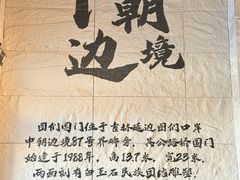 中朝
边境
图们国门位于吉林延边图们口岸
中朝边境87号界碑旁,其公路桥国门
始建于1988年,高13.7米,宽23米,
两面刻有白玉石民族团结雕塑,